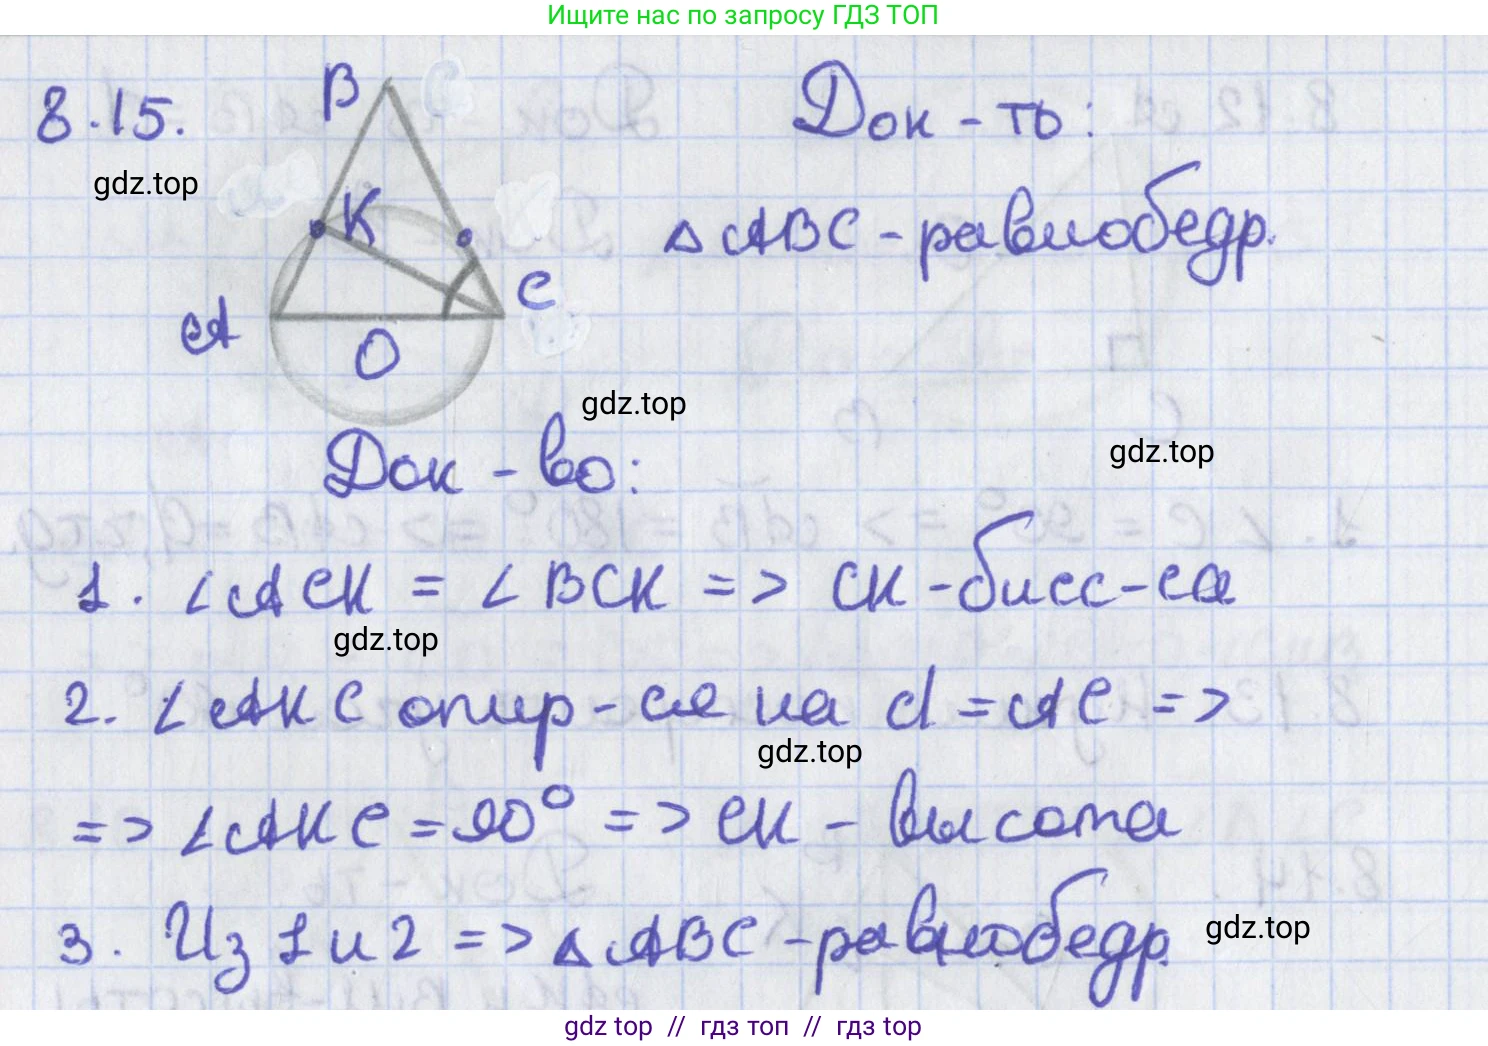 Ищите нас по запросу ГДЗ ТОП
8.15.
Док-ть:
gdz.top
B
K
△ABC - равнобедр.
A
C
O
gdz.top
Док-во:
gdz.top
1. ∠ACK = ∠BCK => CK - бисс-са
gdz.top
2. ∠AKC опир-ся на d = AC =>
gdz.top
=> ∠AKC = 90° => CK - высота
3. Из 1 и 2 => △ABC - равнобедр.
gdz.top
gdz top // гдз топ // гдз top